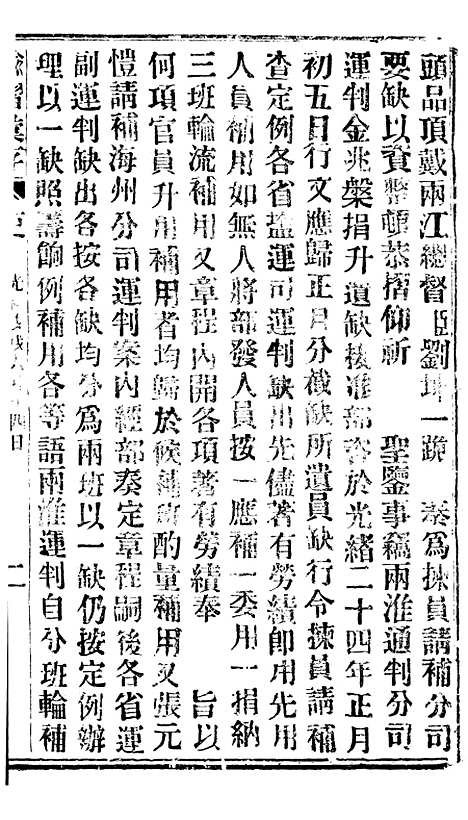 頭品頂戴兩江總督臣劉坤一跪　奏爲揀員請補分司
要缺以資整頓恭摺仰祈　聖鑒事竊兩淮通判分司
運判金兆槃捐升道缺接准部咨於光緒二十四年正月
初五日行文應歸正月分截缺所遺員缺行令揀員請補
查定例各省鹽運司運判缺出先儘著有勞績卽用先用
人員補用如無人將部發人員按一應補一委用一捐納
三班輪流補用又章程內開各項著有勞績奉　旨以
何項官員升用補用者均歸於候補班酌量補用又張元
愷請補海州分司運判案內經部奏定章程嗣後各省運
副運判缺出各按各缺均分爲兩班以一缺仍按定例辦
理以一缺照籌餉例補用各等語兩淮運判自分班輪補
四日
二